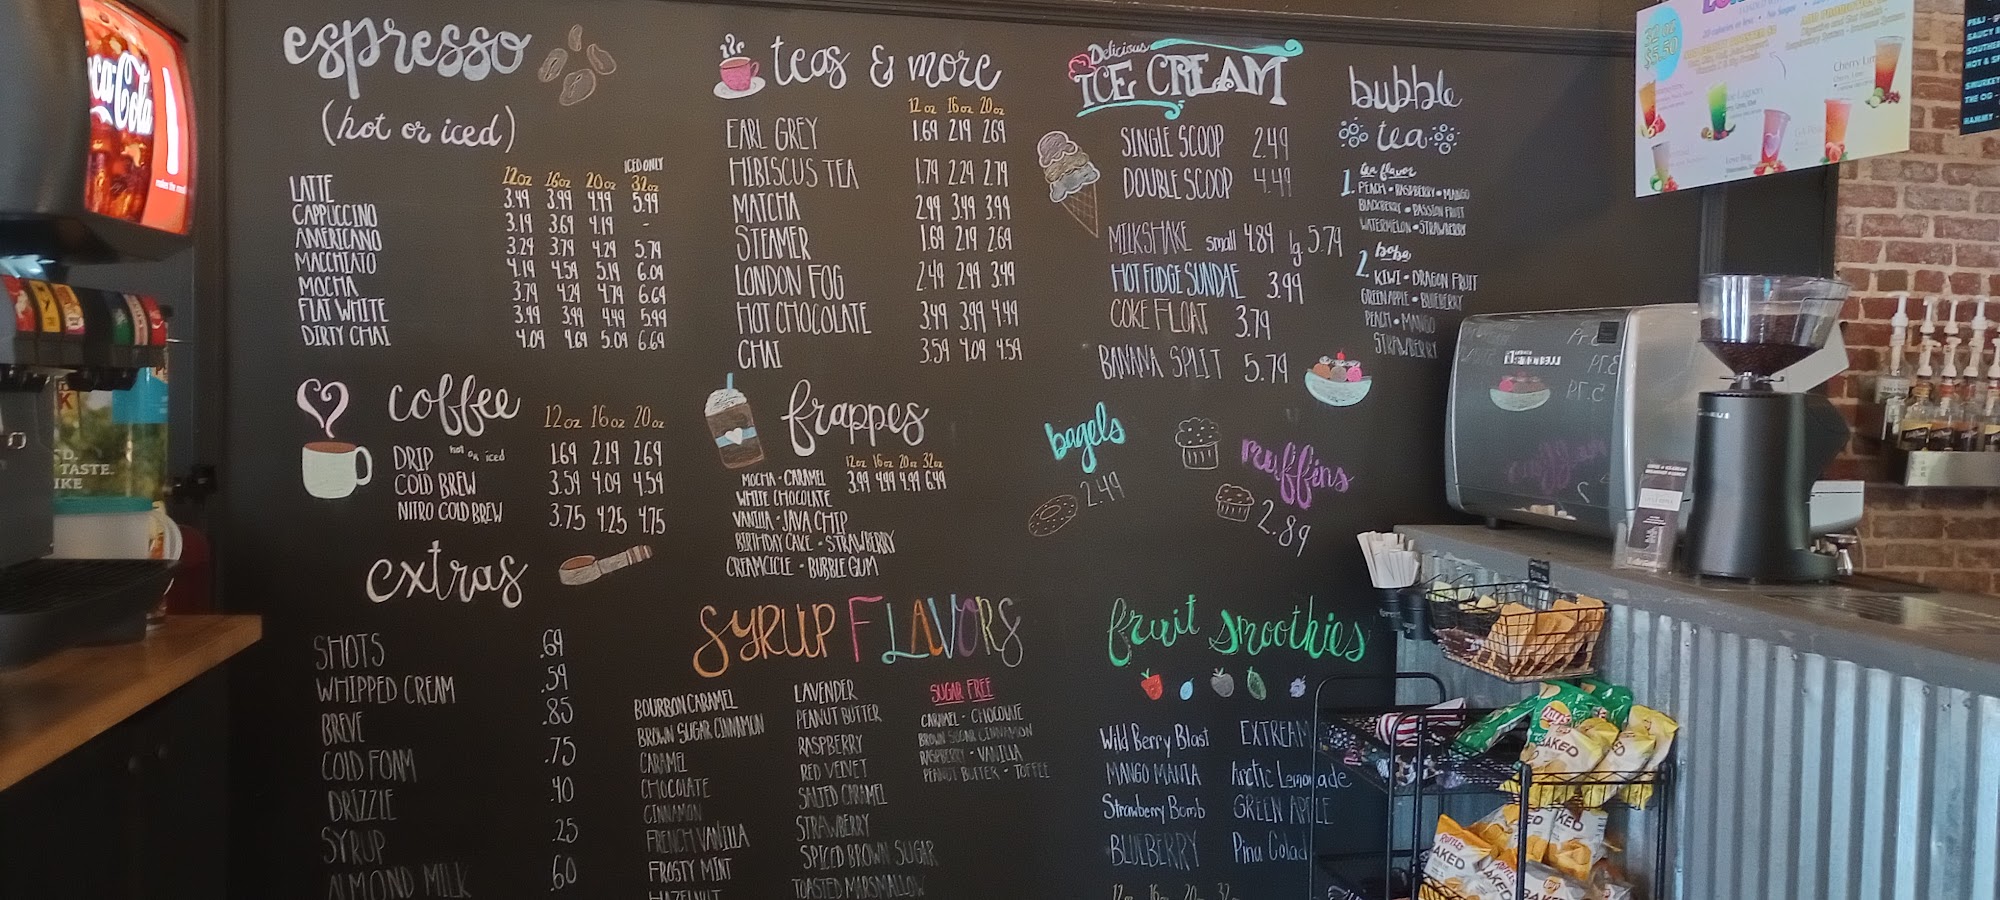 espresso
(hot or iced)
ICED ONLY
12oz 16oz 20oz 32oz
LATTE 3.49 3.99 4.49 5.99
CAPPUCCINO 3.19 3.69 4.19 -
AMERICANO 3.29 3.79 4.29 5.79
MACCHIATO 4.19 4.59 5.19 6.09
MOCHA 3.79 4.29 4.79 6.69
FLAT WHITE 3.49 3.99 4.49 5.99
DIRTY CHAI 4.09 4.69 5.09 6.69
coffee 12oz 16oz 20oz
DRIP hot or iced 1.69 2.19 2.69
COLD BREW 3.59 4.09 4.59
NITRO COLD BREW 3.75 4.25 4.75
extras
SHOTS .69
WHIPPED CREAM .59
BREVE .85
COLD FOAM .75
DRIZZLE .40
SYRUP .25
ALMOND MILK .60
teas & more
12oz 16oz 20oz
EARL GREY 1.69 2.19 2.69
HIBISCUS TEA 1.79 2.29 2.79
MATCHA 2.99 3.49 3.99
STEAMER 1.69 2.19 2.69
LONDON FOG 2.49 2.99 3.49
HOT CHOCOLATE 3.49 3.99 4.49
CHAI 3.59 4.09 4.59
frappes
12oz 16oz 20oz 32oz
MOCHA - CARAMEL 3.99 4.49 4.99 6.49
WHITE CHOCOLATE
VANILLA - JAVA CHIP
BIRTHDAY CAKE - STRAWBERRY
CREAMCICLE - BUBBLE GUM
SYRUP FLAVORS
BOURBON CARAMEL
BROWN SUGAR CINNAMON
CARAMEL
CHOCOLATE
CINNAMON
FRENCH VANILLA
FROSTY MINT
HAZELNUT
LAVENDER
PEANUT BUTTER
RASPBERRY
RED VELVET
SALTED CARAMEL
STRAWBERRY
SPICED BROWN SUGAR
TOASTED MARSMALLOW
SUGAR FREE
CARAMEL - CHOCOLATE
BROWN SUGAR CINNAMON
RASPBERRY - VANILLA
PEANUT BUTTER - TOFFEE
Delicious
ICE CREAM
SINGLE SCOOP 2.49
DOUBLE SCOOP 4.49
MILKSHAKE small 4.89 lg 5.79
HOT FUDGE SUNDAE 3.99
COKE FLOAT 3.79
BANANA SPLIT 5.79
bagels
2.49
muffins
2.89
fruit smoothies
Wild Berry Blast
MANGO MANIA
Strawberry Bomb
BLUEBERRY
EXTREAM
Arctic Lemonade
GREEN APPLE
Pina Colad
12oz 16oz 20 32
bubble
tea
1. tea flavor
PEACH • RASPBERRY • MANGO
BLACKBERRY • PASSION FRUIT
WATERMELON • STRAWBERRY
2. boba
KIWI • DRAGON FRUIT
GREEN APPLE • BLUEBERRY
PEACH • MANGO
STRAWBERRY
ca-Cola
TASTE.
IKE
32 oz
$5.50
Cherry Lime
Lagoon
Love Bug
Lay's
BAKED
BAKED
Ruffles
BAKED